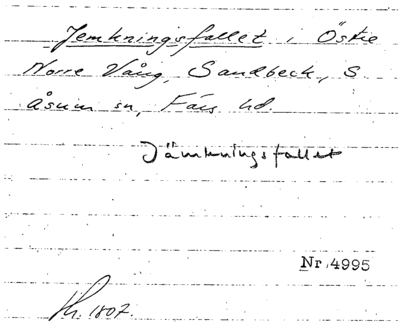 Jemkningsfallet i Östre
Norre Vång, Sandbeck, S
åsum sn, Färs hd.
Jämkningsfallet
Nr 4995
Lh. 1807.